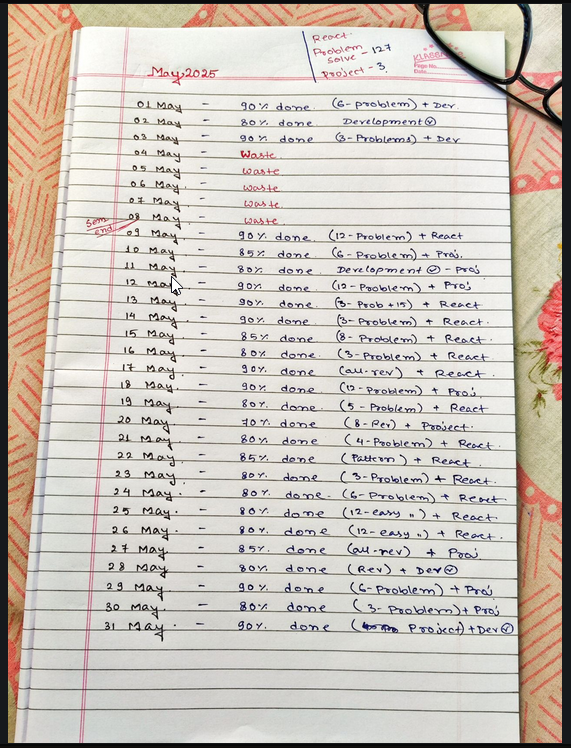 React.
Problem
solve - 127
Project - 3
KLASSMATE
Page No.
Date
May 2025
01 May - 90% done. (6-problem) + Dev.
02 May - 80% done Development ✓
03 May - 90% done (3-Problems) + Dev
04 May - Waste.
05 May - waste.
06 May. - waste
07 May - waste.
08 May - waste.
Sem end
09 May - 90% done. (12-Problem) + React
10 May - 85% done. (6-Problem) + Proj.
11 May - 80% done. Development ✓ - Proj
12 May - 90% done. (12-Problem) + Proj
13 May - 90% done. (3-Prob +15) + React
14 May - 90% done. (3-Problem) + React.
15 May - 85% done. (8-Problem) + React.
16 May - 80% done. (3-Problem) + React.
17 May. - 90% done. (all-rev) + React.
18 May. - 90% done. (12-Problem) + Proj.
19 May - 80% done. (5-Problem) + React
20 May - 70% done (8-Rev) + Project.
21 May - 80% done (4-Problem) + React.
22 May. - 85% done. (Pattern) + React.
23 May. - 80% done. (3-Problem) + React.
24 May. - 80% done. (6-Problem) + React
25 May. - 80% done (12-easy ") + React.
26 May. - 80% done (12-easy ") + React.
27 May. - 85% done (all-rev) + Proj
28 May - 80% done (Rev) + Dev ✓
29 May - 90% done (6-Problem) + Proj
30 May. - 80% done (3-Problem) + Proj
31 May. - 90% done ( Project) + Dev ✓